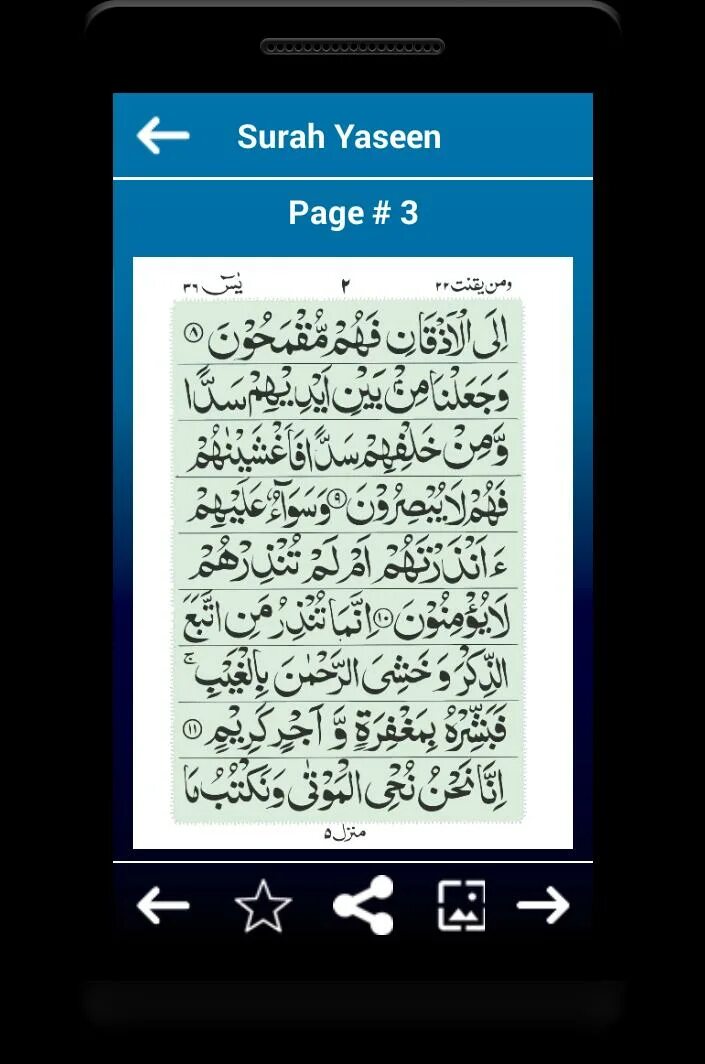 Surah Yaseen
Page # 3
ومن یقنت ۲۲ ۲ یٰسٓ ۳۶
اِلَى الْاَذْقَانِ فَهُمْ مُّقْمَحُوْنَ ۸
وَجَعَلْنَا مِنْۢ بَيْنِ اَيْدِيْهِمْ سَدًّا
وَّمِنْ خَلْفِهِمْ سَدًّا فَاَغْشَيْنٰهُمْ
فَهُمْ لَا يُبْصِرُوْنَ ۹ وَسَوَآءٌ عَلَيْهِمْ
ءَاَنْذَرْتَهُمْ اَمْ لَمْ تُنْذِرْهُمْ
لَا يُؤْمِنُوْنَ ۱۰ اِنَّمَا تُنْذِرُ مَنِ اتَّبَعَ
الذِّكْرَ وَ خَشِىَ الرَّحْمٰنَ بِالْغَيْبِ ۚ
فَبَشِّرْهُ بِمَغْفِرَةٍ وَّ اَجْرٍ كَرِيْمٍ ۱۱
اِنَّا نَحْنُ نُحْىِ الْمَوْتٰى وَنَكْتُبُ مَا
منزل ۵